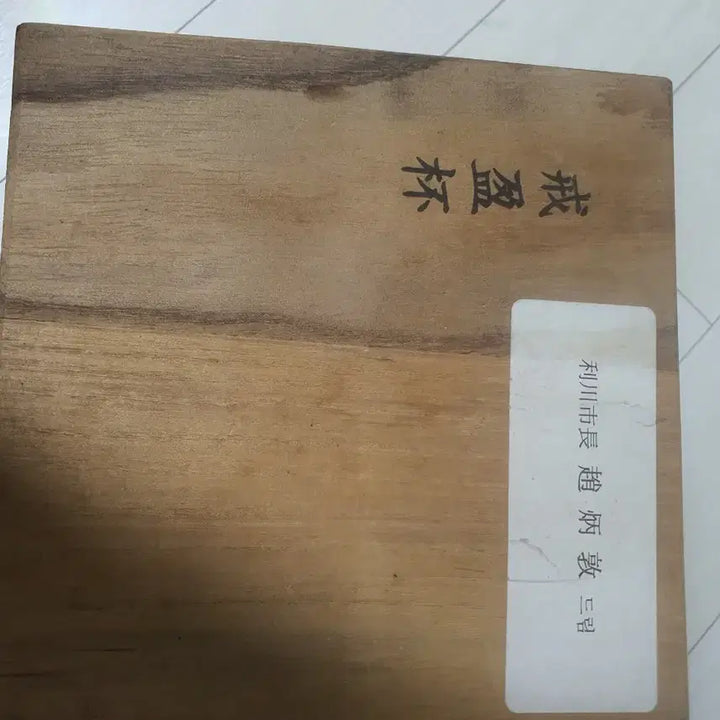 戒盈杯
利川市長 趙炳敦 드림